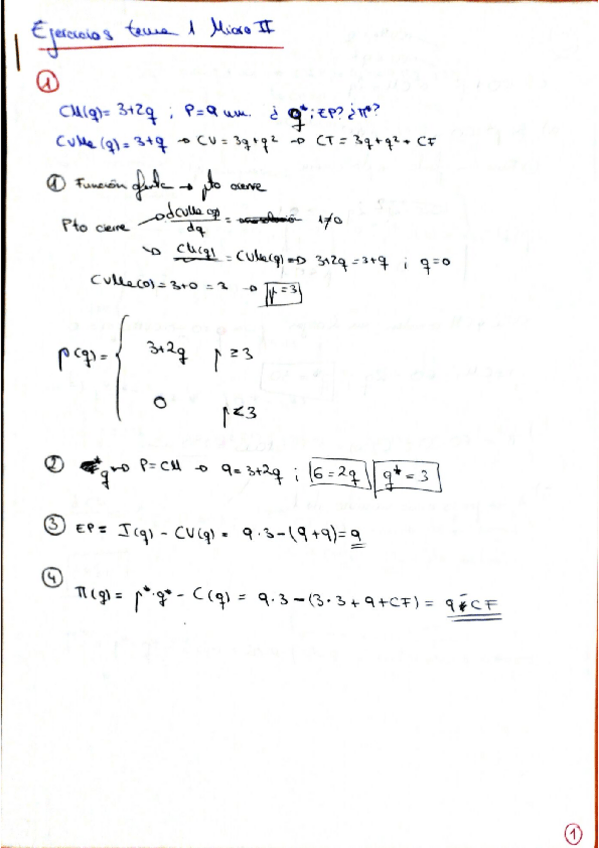 Ejercicios tema 1 Micro II
①
CM(q) = 3+2q ; P=9 u.m. ¿ q*; EP? ¿π*?
CVMe(q) = 3+q → CV = 3q+q² → CT = 3q+q²+CF
① Función oferta → pto cierre
Pto cierre → dCVMe(q)/dq = 1≠0
↳ CM(q) = CVMe(q) ⇒ 3+2q = 3+q ; q=0
CVMe(0) = 3+0 = 3 → p=3
p(q) = {
3+2q p ≥ 3
0 p ≤ 3
② q* → P=CM → 9=3+2q ; 6=2q q*=3
③ EP = I(q) - CV(q) = 9·3-(9+9) = 9
④
π(q) = p*·q* - C(q) = 9·3-(3·3+9+CF) = 9-CF
①